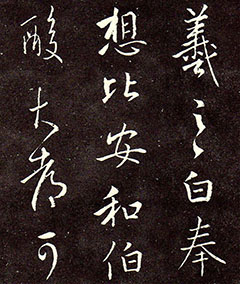 羲之白奉
想比安和伯
酸大都可